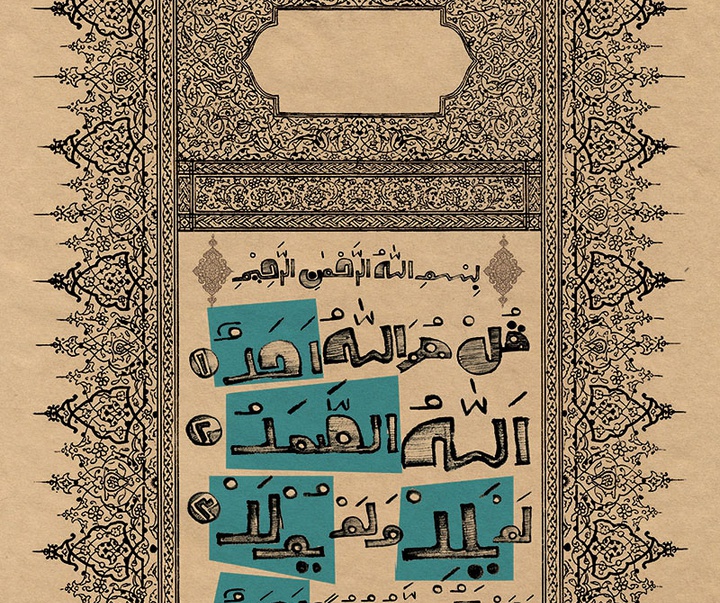 بِسْمِ اللّٰهِ الرَّحْمٰنِ الرَّحِيْمِ
قُلْ هُوَ اللّٰهُ اَحَدٌ ١
اَللّٰهُ الصَّمَدُ ٢
لَمْ يَلِدْ وَلَمْ يُوْلَدْ ٣